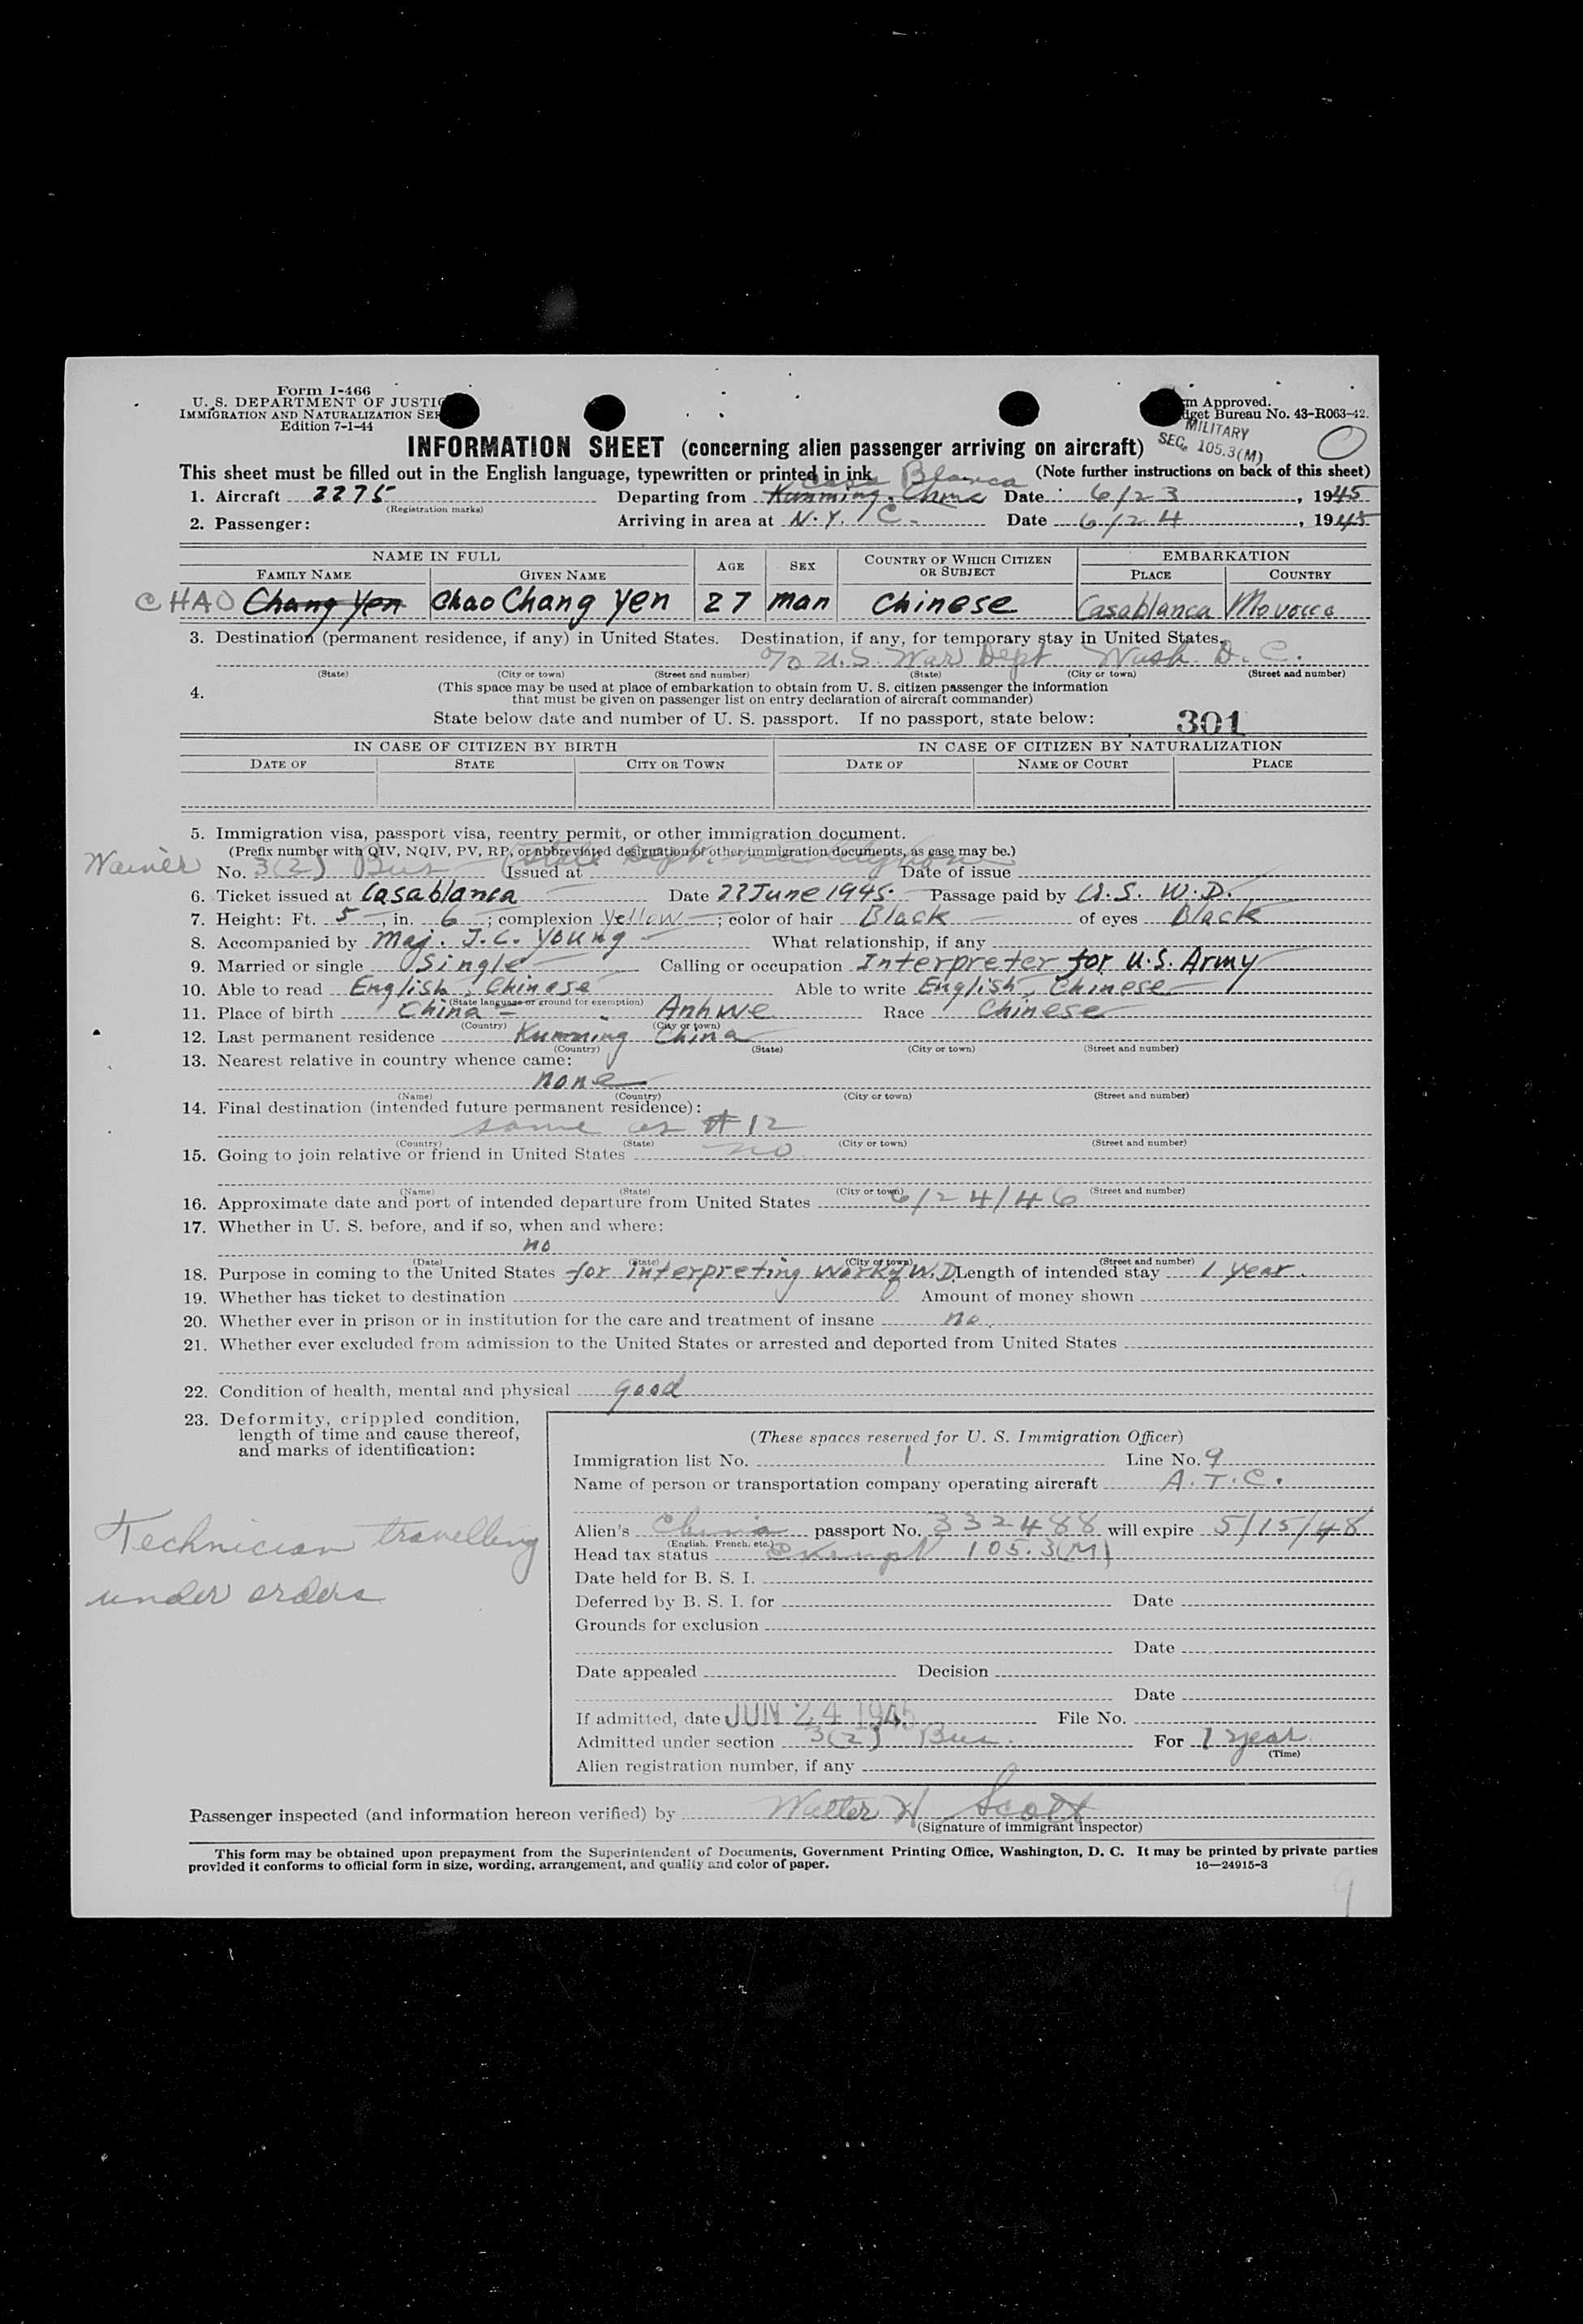 Form I-466
U. S. DEPARTMENT OF JUSTIC
IMMIGRATION AND NATURALIZATION SER
Edition 7-1-44
m Approved.
dget Bureau No. 43-R063-42.
MILITARY
SEC. 105.3(M)
INFORMATION SHEET (concerning alien passenger arriving on aircraft)
This sheet must be filled out in the English language, typewritten or printed in ink. (Note further instructions on back of this sheet)
Casa Blanca
1. Aircraft 2275 Departing from Kunming. China Date 6/23, 1945
(Registration marks)
2. Passenger: Arriving in area at N.Y.C. Date 6/24, 1945
NAME IN FULL AGE SEX COUNTRY OF WHICH CITIZEN OR SUBJECT EMBARKATION
FAMILY NAME GIVEN NAME PLACE COUNTRY
CHAO Chang Yen Chao Chang Yen 27 man Chinese Casablanca Morocco
3. Destination (permanent residence, if any) in United States. Destination, if any, for temporary stay in United States.
c/o U.S. War Dept Wash. D.C.
(State) (City or town) (Street and number) (State) (City or town) (Street and number)
4. (This space may be used at place of embarkation to obtain from U. S. citizen passenger the information
that must be given on passenger list on entry declaration of aircraft commander)
State below date and number of U. S. passport. If no passport, state below: 301
IN CASE OF CITIZEN BY BIRTH IN CASE OF CITIZEN BY NATURALIZATION
DATE OF STATE CITY OR TOWN DATE OF NAME OF COURT PLACE
5. Immigration visa, passport visa, reentry permit, or other immigration document.
(Prefix number with QIV, NQIV, PV, RP, or abbreviated designation of other immigration documents, as case may be.)
Waiver No. 3(2) Bus (State Dept. Issued at Date of issue
6. Ticket issued at Casablanca Date 22 June 1945. Passage paid by U.S. W.D.
7. Height: Ft. 5, in. 6; complexion Yellow; color of hair Black of eyes Black
8. Accompanied by Maj. J.C. Young What relationship, if any
9. Married or single Single Calling or occupation Interpreter for U.S. Army
10. Able to read English, Chinese Able to write English, Chinese
(State language or ground for exemption)
11. Place of birth China - Anhwe Race Chinese
(Country) (City or town)
12. Last permanent residence Kunming China
(Country) (State) (City or town) (Street and number)
13. Nearest relative in country whence came:
none
(Name) (Country) (City or town) (Street and number)
14. Final destination (intended future permanent residence):
same as #12
(Country) (State) (City or town) (Street and number)
15. Going to join relative or friend in United States no
(Name) (State) (City or town) (Street and number)
16. Approximate date and port of intended departure from United States 6/24/46
17. Whether in U. S. before, and if so, when and where:
no
(Date) (State) (City or town) (Street and number)
18. Purpose in coming to the United States for interpreting work of W.D. Length of intended stay 1 year.
19. Whether has ticket to destination Amount of money shown
20. Whether ever in prison or in institution for the care and treatment of insane no.
21. Whether ever excluded from admission to the United States or arrested and deported from United States
22. Condition of health, mental and physical good
23. Deformity, crippled condition,
length of time and cause thereof,
and marks of identification:
Technician travelling
under orders
(These spaces reserved for U. S. Immigration Officer)
Immigration list No. 1 Line No. 9
Name of person or transportation company operating aircraft A.T.C.
Alien's China passport No. 332488 will expire 5/15/48
(English, French, etc.)
Head tax status exempt 105.3(M)
Date held for B. S. I.
Deferred by B. S. I. for Date
Grounds for exclusion
Date
Date appealed Decision
Date
If admitted, date JUN 24 1945 File No.
Admitted under section 3(2) Bus. For 1 year
(Time)
Alien registration number, if any
Passenger inspected (and information hereon verified) by Walter H Scott
(Signature of immigrant inspector)
This form may be obtained upon prepayment from the Superintendent of Documents, Government Printing Office, Washington, D. C. It may be printed by private parties
provided it conforms to official form in size, wording, arrangement, and quality and color of paper. 16—24915-3
9